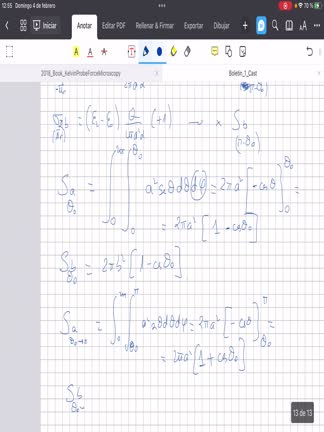 12:55 Domingo 4 de febrero
70 %
Iniciar Anotar Editar PDF Rellenar & Firmar Exportar Dibujar
2018_Book_KelvinProbeForceMicroscopy × Boletin_1_Cast ×
(π-θ₀) = (ε₁-ε) (+1) → × S_b (π-θ₀)
S_a θ₀ = ∫₀^2π ∫₀^θ₀ a² senθ dθ dφ = 2πa² [-cosθ]₀^θ₀ =
= 2πa² [1 - cosθ₀]
S_b θ₀ = 2πb² [1 - cosθ₀]
S_a θ₀→π = ∫₀^2π ∫_θ₀^π a² senθ dθ dφ = 2πa² [-cosθ]_θ₀^π =
= 2πa² [1 + cosθ₀]
S_b θ₀→
13 de 13